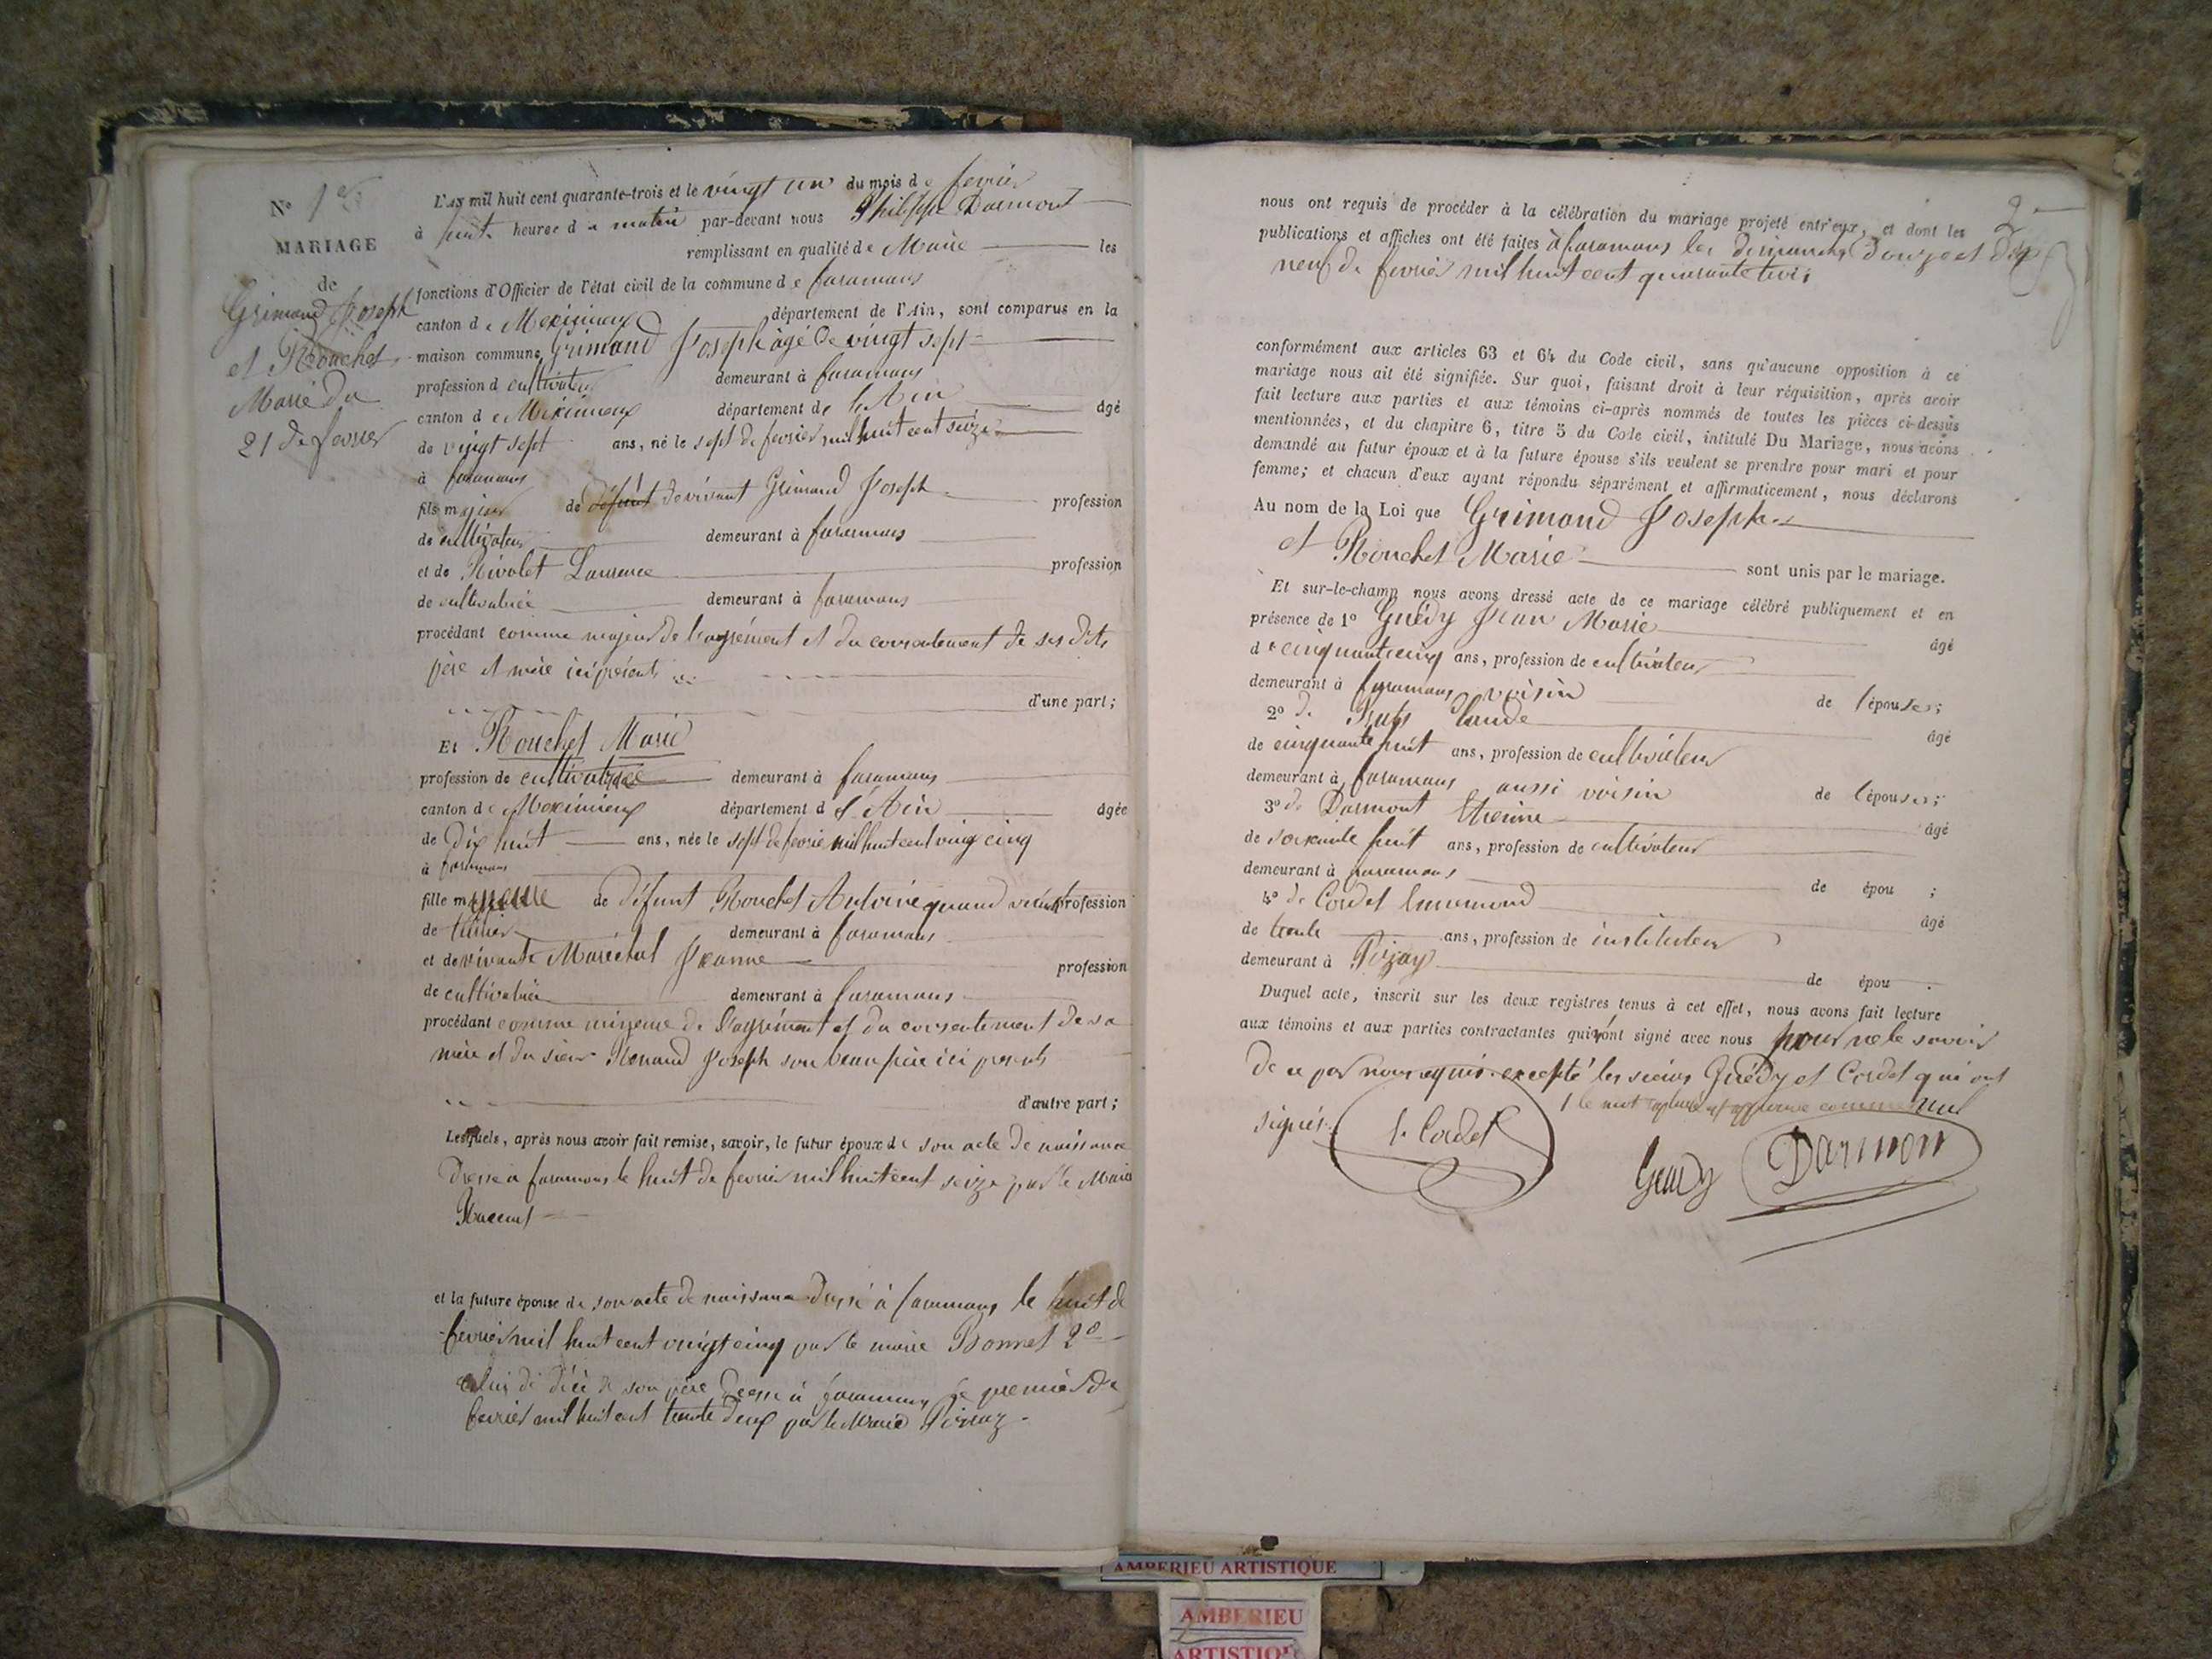 N° 1er
MARIAGE
de
Grimand Joseph
et Rouchet
Marie du
21 de fevrier
L'AN mil huit cent quarante-trois et le vingt un du mois de fevrier
à huit heures du matin par-devant nous Philippe Darmont
remplissant en qualité de Maire les
fonctions d'Officier de l'état civil de la commune de faramans
canton de Meximieux département de l'Ain, sont comparus en la
maison commune Grimand Joseph âgé de vingt sept
profession d cultivateur demeurant à faramans
canton de Meximieux département de l'Ain âgé
de vingt sept ans, né le sept de fevrier mil huit cent seize
à faramans
fils majeur de défunt de vivant Grimand Joseph profession
de cultivateur demeurant à faramans
et de Rivolet Laurence profession
de cultivatrice demeurant à faramans
procédant comme majeur de l'agrément et du consentement de ses dits
père et mère ici présents
d'une part;
Et Rouchet Marie
profession de cultivatrice demeurant à faramans
canton de Meximieux département d l'Ain agée
de dix huit ans, née le sept de fevrie mil huit cent ving cinq
à faramans
fille mineure de défunt Rouchet Antoine quand vivait profession
de demeurant à faramans
et de vivante Maréchal Jeanne profession
de cultivatrice demeurant à faramans
procédant comme mineure de l'agrément et du consentement de sa
mère et du sieur Renaud Joseph son beau père ici présents
d'autre part;
Lesquels, après nous avoir fait remise, savoir, le futur époux de son acte de naissance
dressé à faramans le huit de fevrier mil huit cent seize par le Maire
et la future épouse de son acte de naissance dressé à faramans le huit de
fevrier mil huit cent vingt cinq par le maire Bonnet 2°
celui de décé de son père dressé à faramans le premier de
fevrier mil huit cent trente deux par le Maire
2
nous ont requis de procéder à la célébration du mariage projeté entr'eux, et dont les
publications et affiches ont été faites à faramans les dimanches douze et dix
neuf de fevrier mil huit cent quarante trois
conformément aux articles 63 et 64 du Code civil, sans qu'aucune opposition à ce
mariage nous ait été signifiée. Sur quoi, faisant droit à leur réquisition, après avoir
fait lecture aux parties et aux témoins ci-après nommés de toutes les pièces ci-dessus
mentionnées, et du chapitre 6, titre 5 du Code civil, intitulé Du Mariage, nous avons
demandé au futur époux et à la future épouse s'ils veulent se prendre pour mari et pour
femme; et chacun d'eux ayant répondu séparément et affirmativement, nous déclarons
Au nom de la Loi que Grimand Joseph
et Rouchet Marie sont unis par le mariage.
Et sur-le-champ nous avons dressé acte de ce mariage célébré publiquement et en
présence de 1° Guédy Jean Marie âgé
de cinquante cinq ans, profession de cultivateur
demeurant à faramans voisin de l'épouse;
2° de Claude âgé
de cinquante huit ans, profession de cultivateur
demeurant à faramans aussi voisin de l'épouse;
3° de Darmont Etienne âgé
de soixante huit ans, profession de cultivateur
demeurant à faramans de épou ;
4° de Cordet Ennemond âgé
de trente ans, profession de instituteur
demeurant à Pizay de épou .
Duquel acte, inscrit sur les deux registres tenus à cet effet, nous avons fait lecture
aux témoins et aux parties contractantes qui n'ont signé avec nous pour ne le savoir
de ce par nous requis excepté les sieurs Guédy et Cordet qui ont
signés. le mot comme nul
Cordet
Guédy
Darmont
AMBERIEU ARTISTIQUE
AMBERIEU
ARTISTIQU